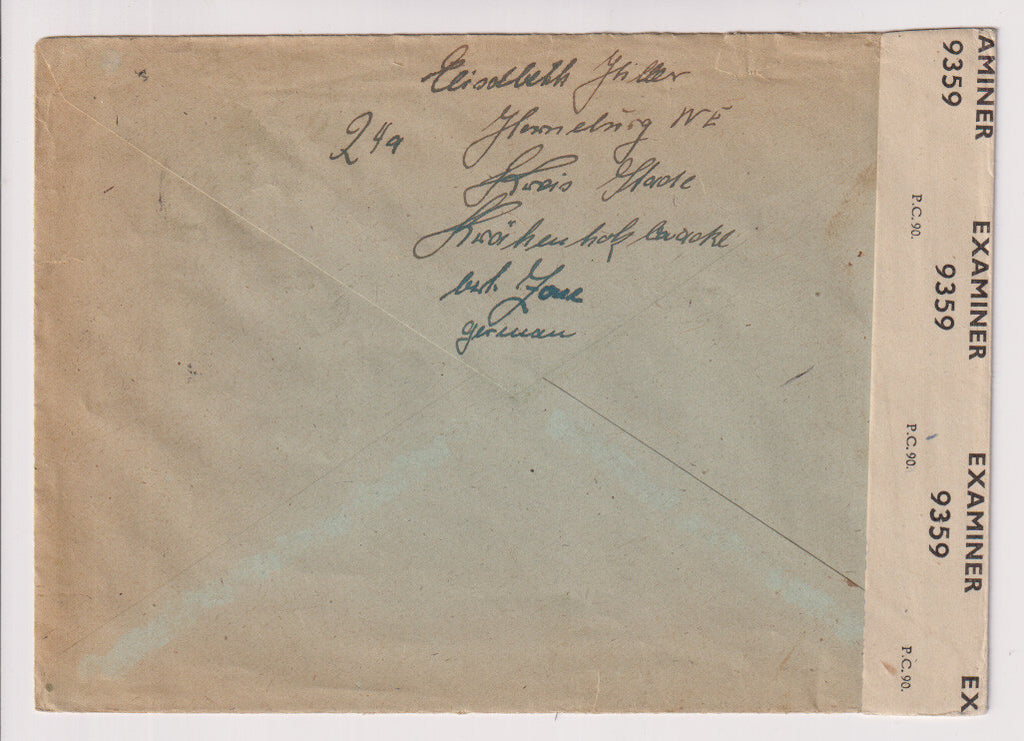 Elisabeth Hiller
24a
Horneburg NE
Kreis Stade
Krähenholzbaracke
brt. Zone
german
AMINER
9359
P.C. 90.
EXAMINER
9359
P.C. 90.
EXAMINER
9359
P.C. 90.
EX